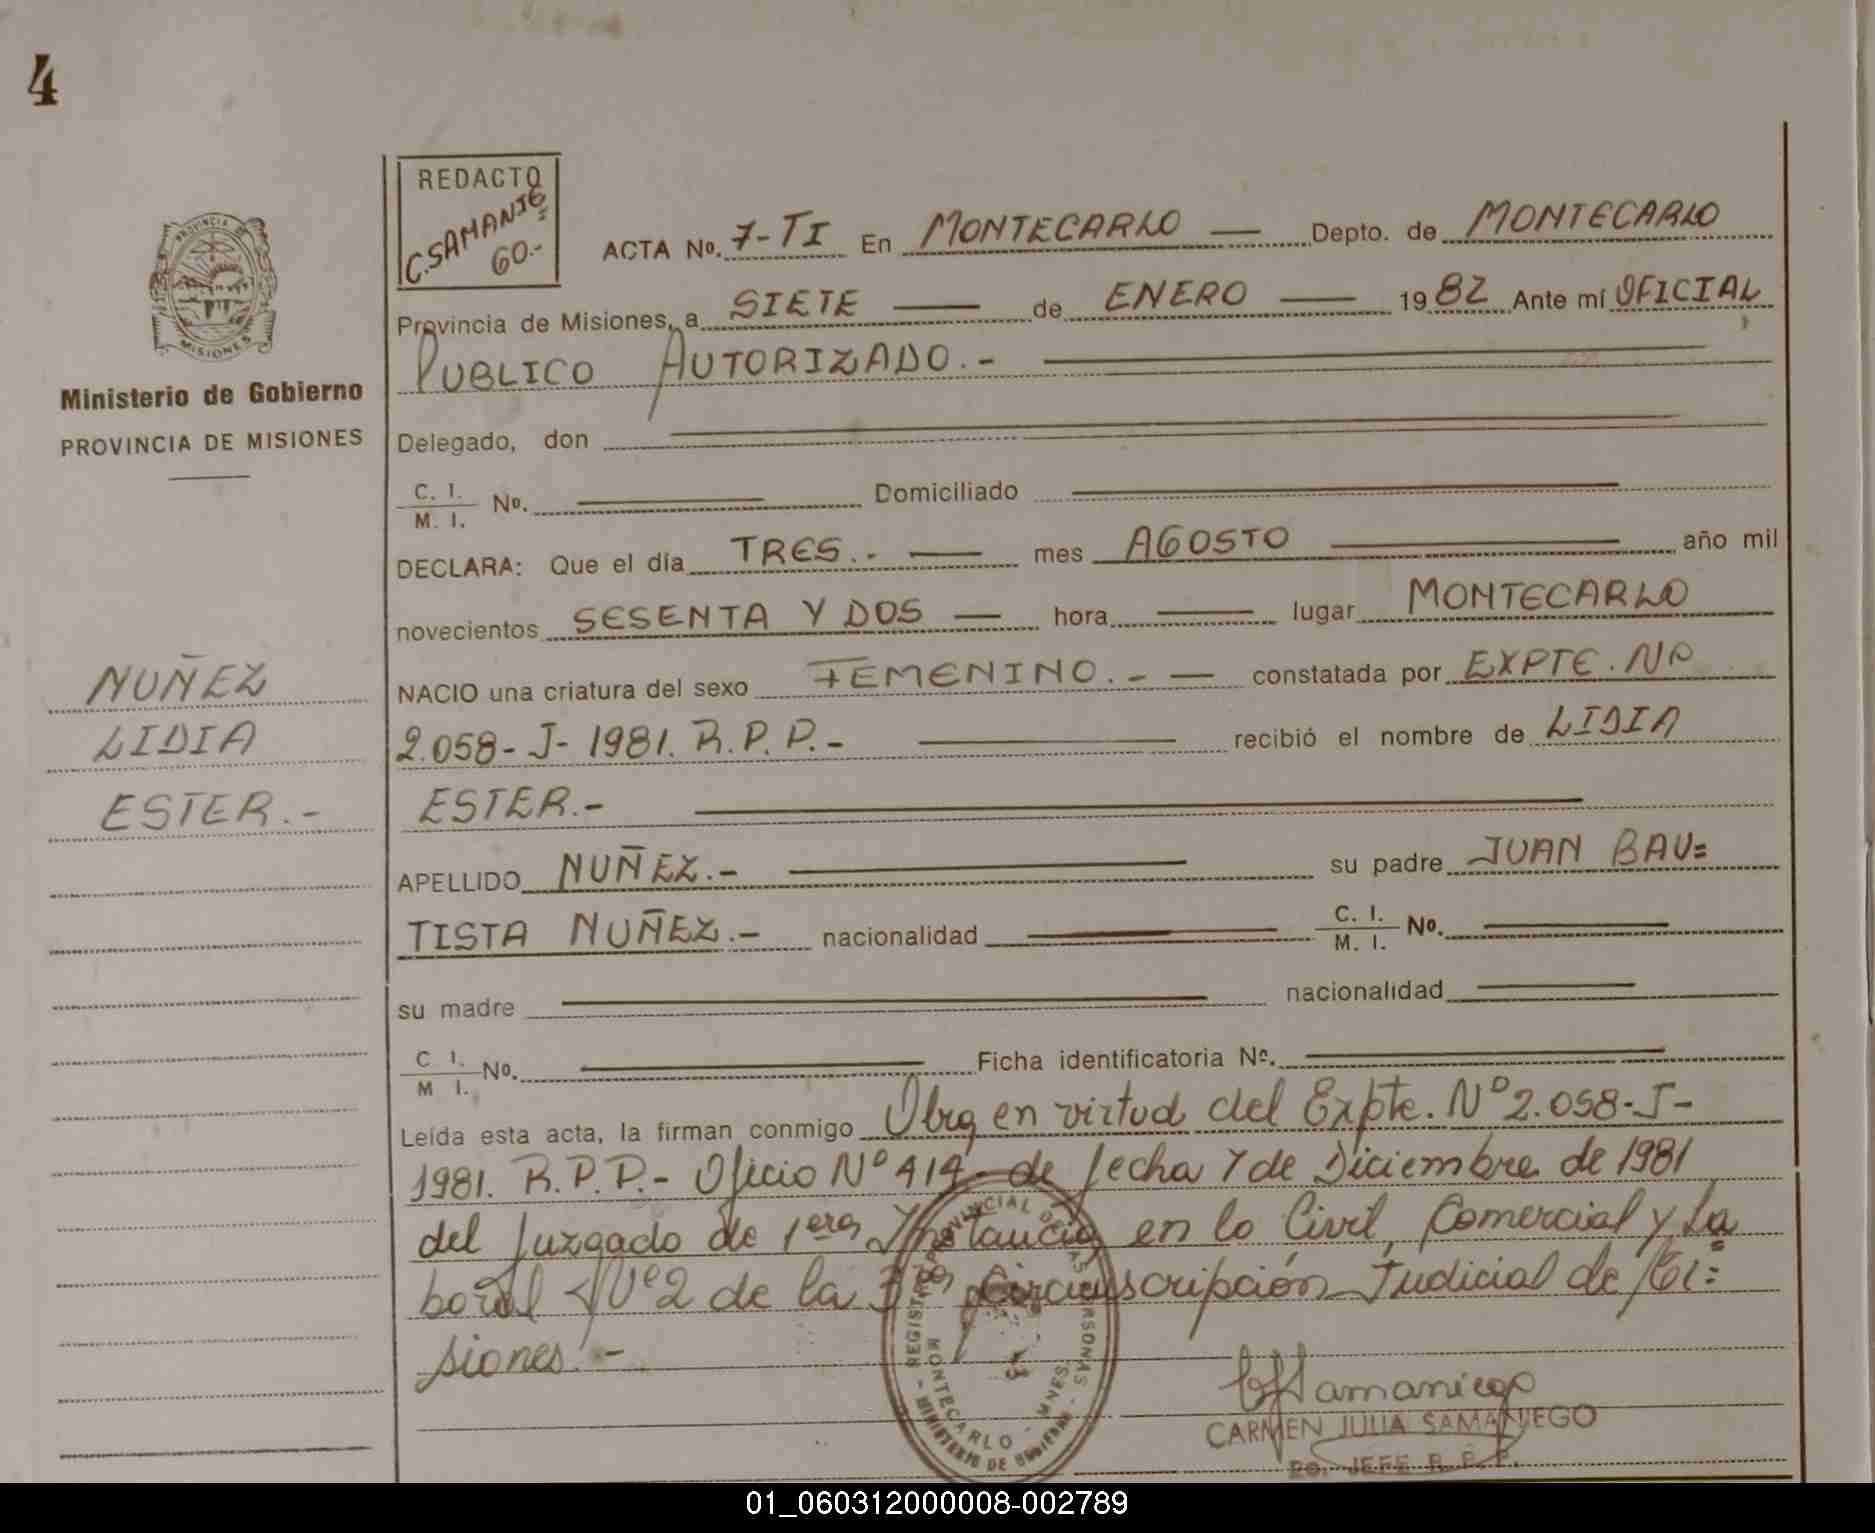 4
REDACTO
C. SAMANIE=
GO.-
ACTA No. 7-TI En MONTECARLO Depto. de MONTECARLO
Provincia de Misiones, a SIETE de ENERO 1982 Ante mí OFICIAL
PUBLICO AUTORIZADO.-
PROVINCIA DE
MISIONES
Ministerio de Gobierno
PROVINCIA DE MISIONES
Delegado, don
C. I.
M. I. No. Domiciliado
DECLARA: Que el día TRES.- mes AGOSTO año mil
novecientos SESENTA Y DOS hora lugar MONTECARLO
NUÑEZ
LIDIA
ESTER.-
NACIO una criatura del sexo FEMENINO.- constatada por EXPTE. Nº
2.058-J-1981. R.P.P.- recibió el nombre de LIDIA
ESTER.-
APELLIDO NUÑEZ.- su padre JUAN BAU=
TISTA NUÑEZ.- nacionalidad C. I. M. I. No.
su madre nacionalidad
C. I.
M. I. No. Ficha identificatoria Nº.
Leída esta acta, la firman conmigo Obra en virtud del Expte. Nº 2.058-J-
1981. R.P.P.- Oficio Nº 414 de fecha 7 de Diciembre de 1981
del Juzgado de 1era Instancia en lo Civil, Comercial y La=
boral Nº 2 de la 3ra Circunscripción Judicial de Mi=
siones.-
REGISTRO PROVINCIAL DE LAS PERSONAS
MONTECARLO - MNES
- MINISTERIO DE GOBIERNO -
CJSamaniego
CARMEN JULIA SAMANIEGO
PO. JEFE R. P. P.
01_060312000008-002789